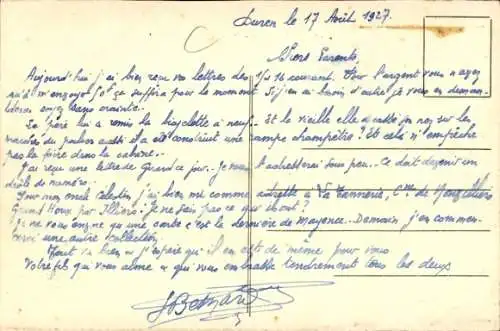 Duren le 17 Août 1927.
Chers Parents
Aujourd'hui j'ai bien reçu vos lettres des 15 et 16 courant. Pour l'argent vous n'avez
qu'à m'envoyer ça suffira pour le moment Si j'en ai besoin d'autre je vous en deman-
derai soyez sans crainte.
Le père lui a remis la bicyclette à neuf. Et la vieille elle a cassé son nez sur les
marches du aussi il a construit une rampe champêtre! Et cela n'empêche
pas la foire dans la cabane.
J'ai reçu une lettre de Quand ce jour. Je vous l'achetterai sous peu. Ce doit devenir un
drôle de numéro.
Pour mon oncle Célestin j'ai bien mis comme adresse à La Tannerie, Cne de
par Illiers. Je ne sais pas ce que
Je ne vous envoie qu'une carte c'est la dernière de Mayence. Demain j'en commen-
cerai une autre collection
Tout va bien et j'espère qu'il en est de même pour vous
Votre fils qui vous aime et qui vous embrasse tendrement tous les deux